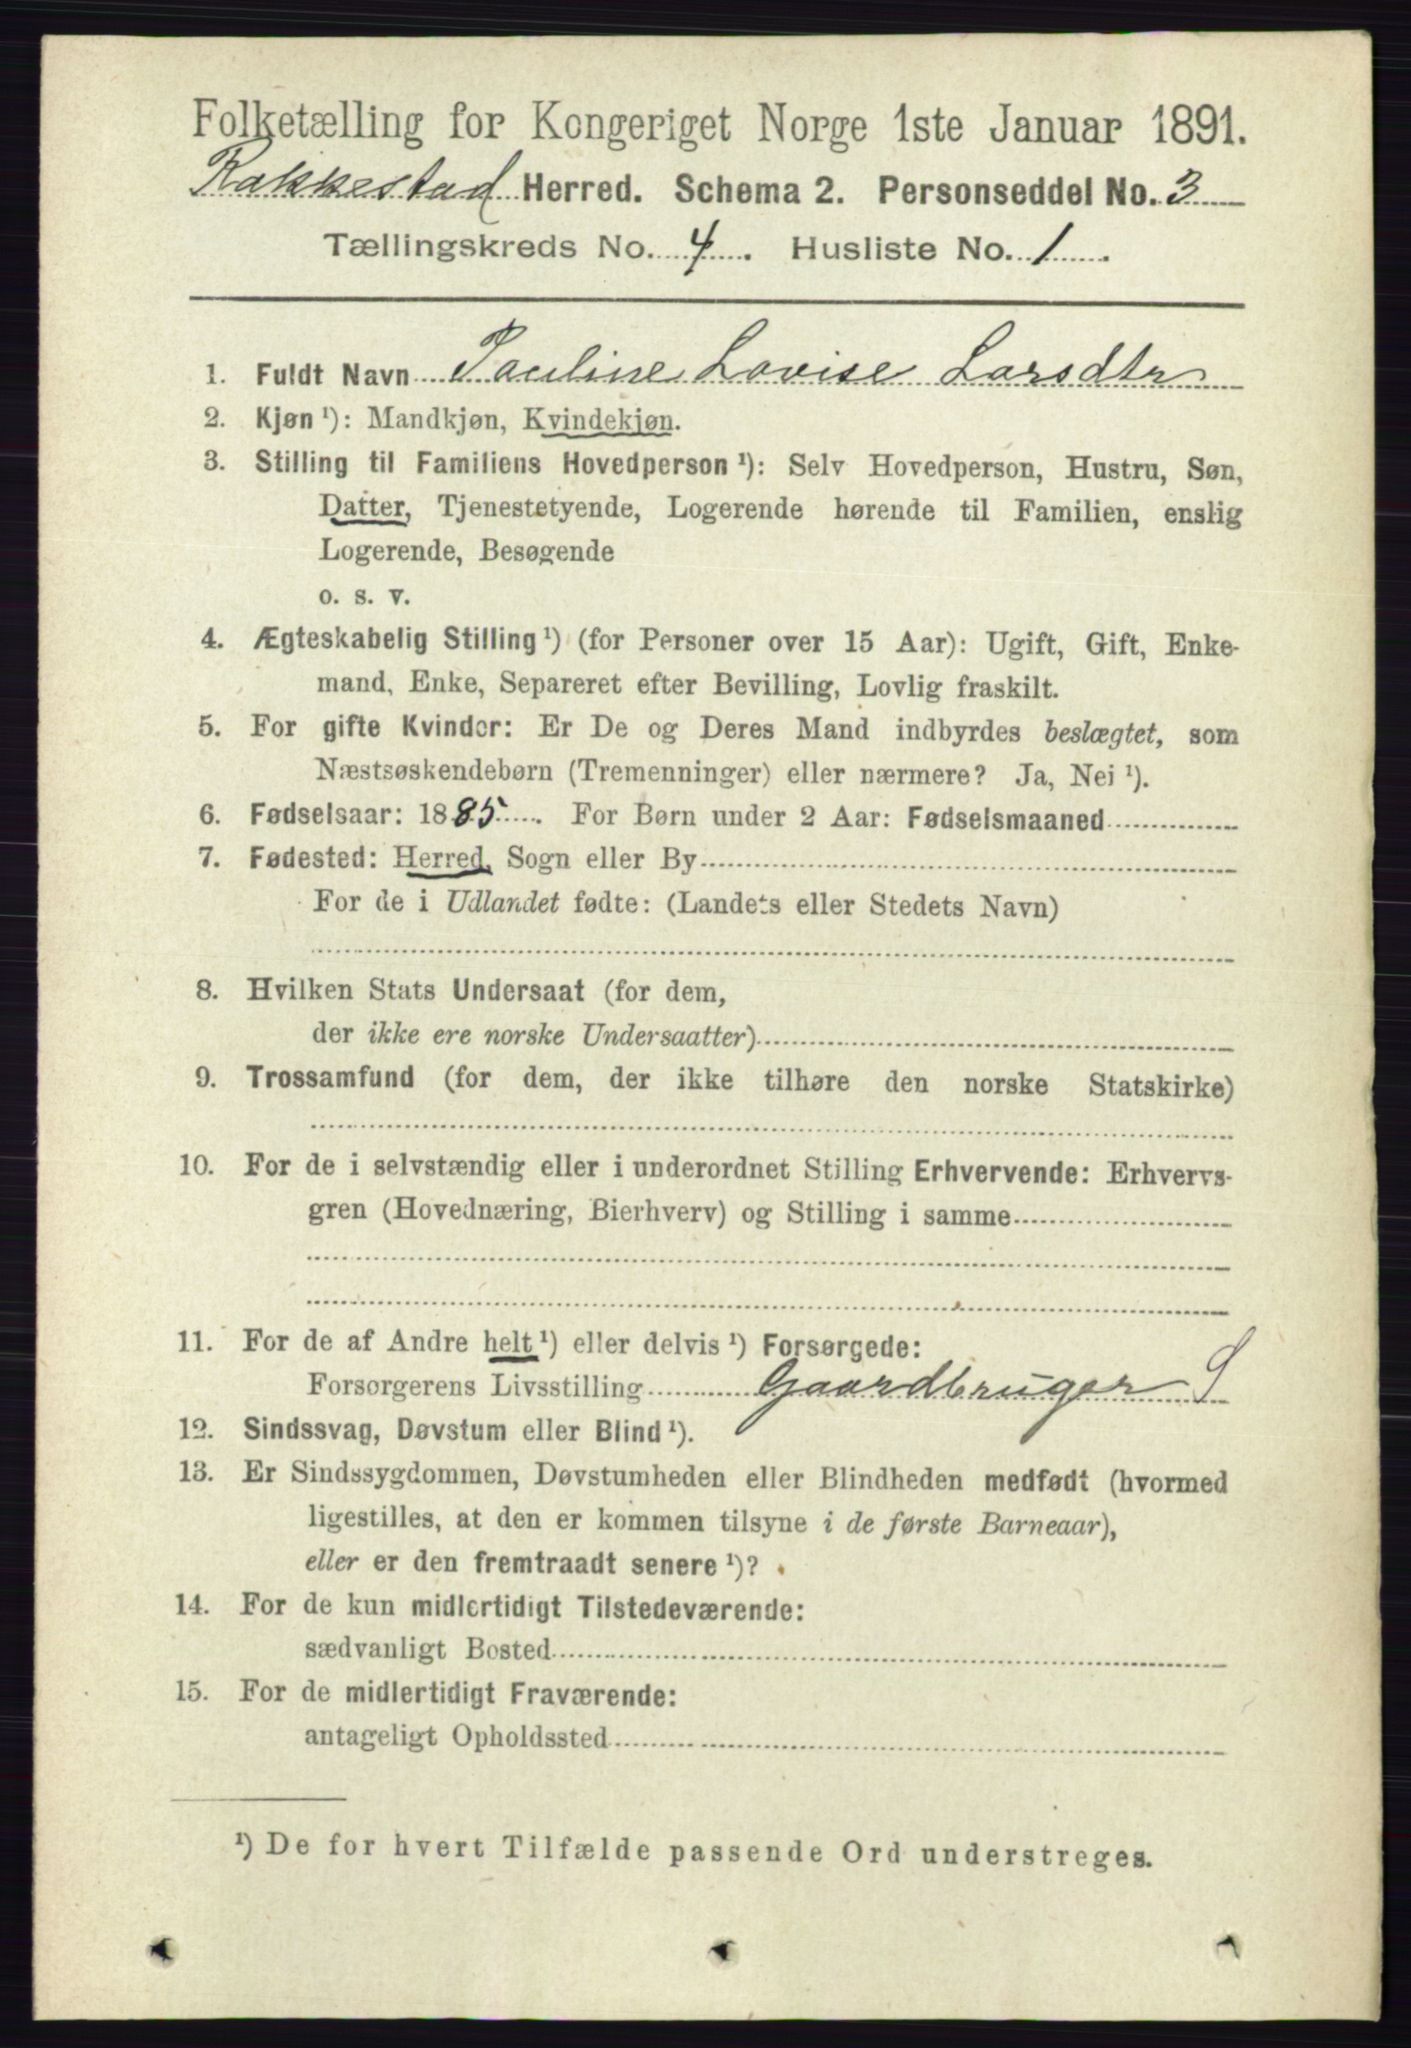 Folketælling for Kongeriget Norge 1ste Januar 1891.
Rakkestad Herred. Schema 2. Personseddel No. 3
Tællingskreds No. 4. Husliste No. 1.
1. Fuldt Navn Pauline Lovise Larsdtr
2. Kjøn ¹): Mandkjøn, Kvindekjøn.
3. Stilling til Familiens Hovedperson ¹): Selv Hovedperson, Hustru, Søn,
Datter, Tjenestetyende, Logerende hørende til Familien, enslig
Logerende, Besøgende
o. s. v.
4. Ægteskabelig Stilling ¹) (for Personer over 15 Aar): Ugift, Gift, Enke-
mand, Enke, Separeret efter Bevilling, Lovlig fraskilt.
5. For gifte Kvinder: Er De og Deres Mand indbyrdes beslægtet, som
Næstsøskendebørn (Tremenninger) eller nærmere? Ja, Nei ¹).
6. Fødselsaar: 1885. For Børn under 2 Aar: Fødselsmaaned
7. Fødested: Herred, Sogn eller By
For de i Udlandet fødte: (Landets eller Stedets Navn)
8. Hvilken Stats Undersaat (for dem,
der ikke ere norske Undersaatter)
9. Trossamfund (for dem, der ikke tilhøre den norske Statskirke)
10. For de i selvstændig eller i underordnet Stilling Erhvervende: Erhvervs-
gren (Hovednæring, Bierhverv) og Stilling i samme
11. For de af Andre helt ¹) eller delvis ¹) Forsørgede:
Forsørgerens Livsstilling Gaardbruger S
12. Sindssvag, Døvstum eller Blind ¹).
13. Er Sindssygdommen, Døvstumheden eller Blindheden medfødt (hvormed
ligestilles, at den er kommen tilsyne i de første Barneaar),
eller er den fremtraadt senere ¹)?
14. For de kun midlertidigt Tilstedeværende:
sædvanligt Bosted
15. For de midlertidigt Fraværende:
antageligt Opholdssted
¹) De for hvert Tilfælde passende Ord understreges.